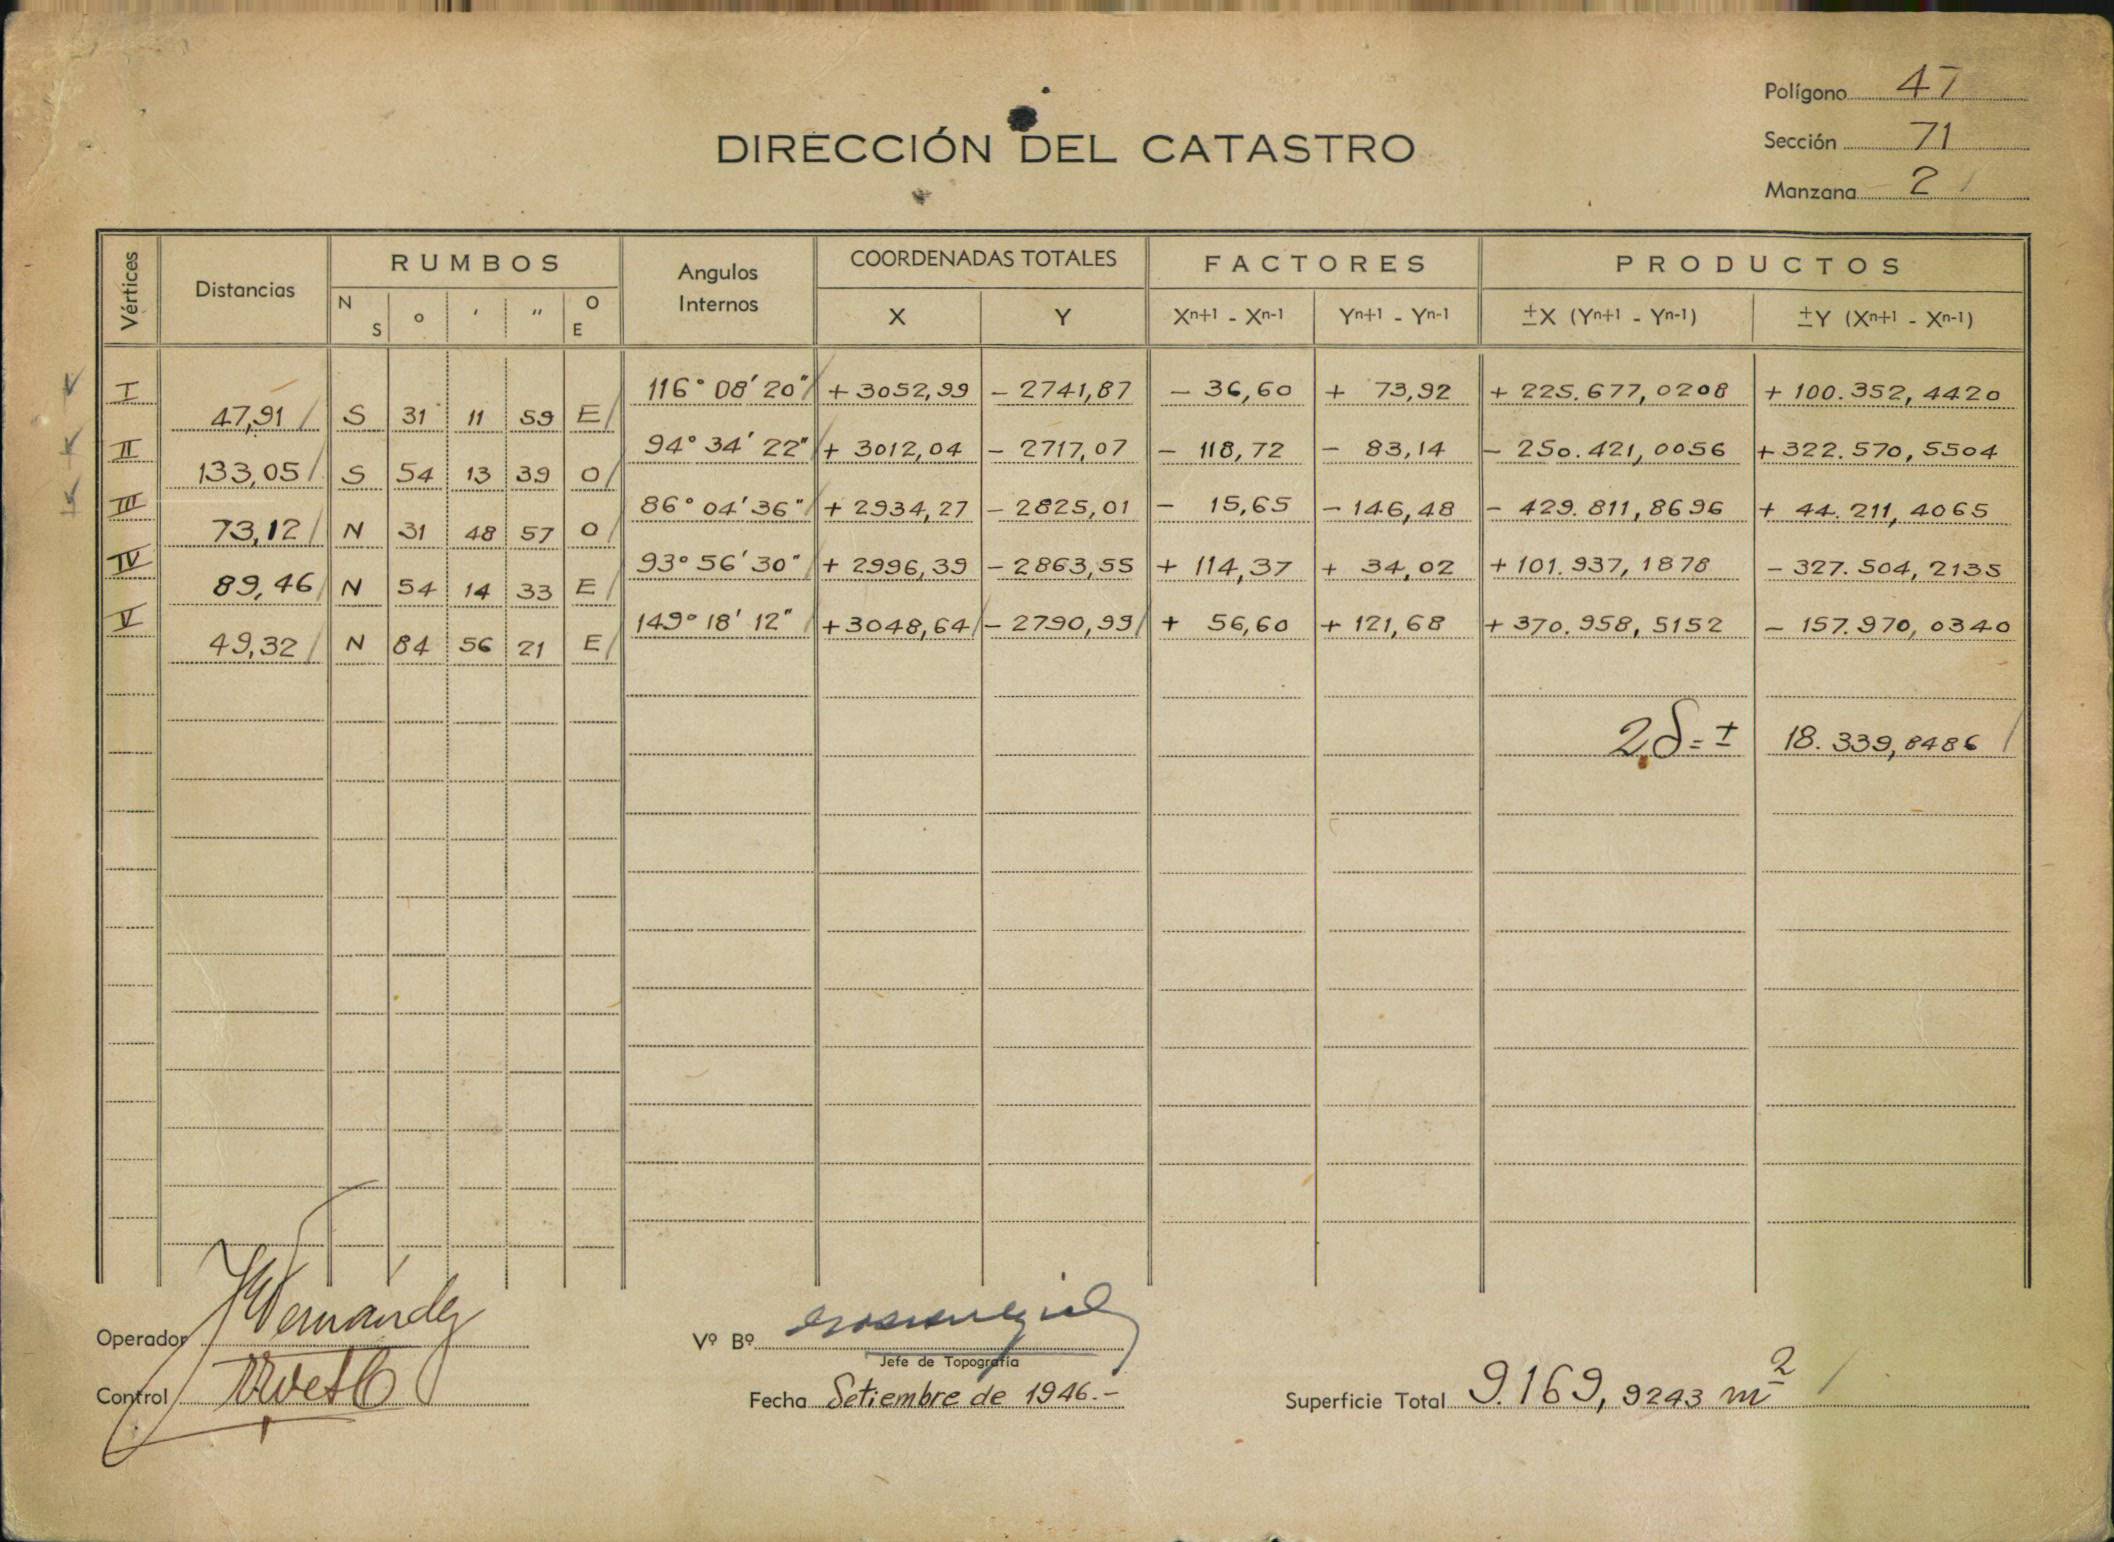 Polígono 47
DIRECCIÓN DEL CATASTRO
Sección 71
Manzana 2
Vértices Distancias RUMBOS Angulos Internos COORDENADAS TOTALES FACTORES PRODUCTOS
N S ° ' " O E X Y Xn+1 - Xn-1 Yn+1 - Yn-1 ±X (Yn+1 - Yn-1) ±Y (Xn+1 - Xn-1)
I 116° 08' 20" + 3052,99 - 2741,87 - 36,60 + 73,92 + 225.677,0208 + 100.352,4420
47,91 S 31 11 59 E
II 94° 34' 22" + 3012,04 - 2717,07 - 118,72 - 83,14 - 250.421,0056 + 322.570,5504
133,05 S 54 13 39 O
III 86° 04' 36" + 2934,27 - 2825,01 - 15,65 - 146,48 - 429.811,8696 + 44.211,4065
73,12 N 31 48 57 O
IV 93° 56' 30" + 2996,39 - 2863,55 + 114,37 + 34,02 + 101.937,1878 - 327.504,2135
89,46 N 54 14 33 E
V 149° 18' 12" + 3048,64 - 2790,99 + 56,60 + 121,68 + 370.958,5152 - 157.970,0340
49,32 N 84 56 21 E
2S = ± 18.339,8486
Operador
Vº Bº
Jefe de Topografía
Control
Fecha Setiembre de 1946.-
Superficie Total 9.169,9243 m2